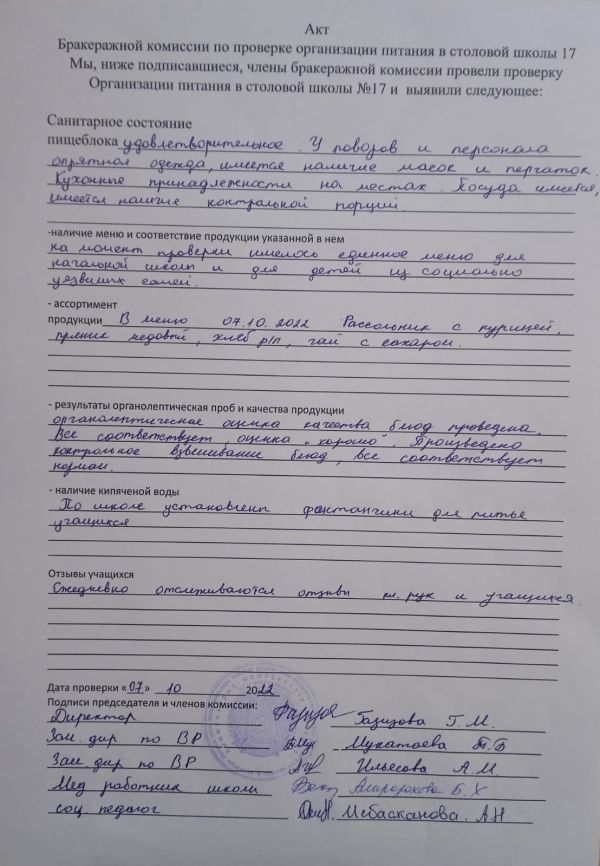 Акт
Бракеражной комиссии по проверке организации питания в столовой школы 17
Мы, ниже подписавшиеся, члены бракеражной комиссии провели проверку
Организации питания в столовой школы №17 и выявили следующее:
Санитарное состояние
пищеблока удовлетворительное. У поворов и персонала
опрятная одежда, имеется наличие масок и перчаток.
Кухонные принадлежности на местах. Посуда имеется,
имеется наличие контральной порций.
-наличие меню и соответствие продукции указанной в нем
на момент проверки имелось единное меню для
начальной школы и для детей из социально
уязвимых семей.
- ассортимент
продукции В меню 07.10.2022 Рассольник с курицей,
пряник медовый, хлеб р/п, чай с сахаром.
- результаты органолептическая проб и качества продукции
органолептическое оценка качества блюд проведена.
Все соответствует, оценка „хорошо". Произведено
контрольное взвешивание блюд, все соответствует
нормам.
- наличие кипяченой воды
По школе установлены фонтанчики для питья
учащихся
Отзывы учащихся
Ежедневно отслеживаются отзывы кл. рук и учащихся.
Дата проверки «07» 10 2022
Подписи председателя и членов комиссии:
Директор Газизова Г.М.
Зам. дир по ВР Мукатаева Т.Б
Зам. дир по ВР Ильесова А.М.
Мед работник школы Б.Х
соц. педагог А.Н